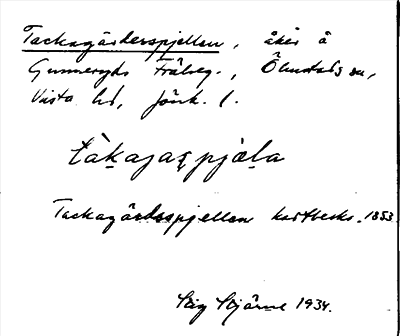 Tackagärdesspjellen, åker å
Gunneryds Frälseg., Ölmstads sn,
Vista hd, Jönk. l.
tàkajaṣpjæla
Tackagärdesspjellen kartbeskr. 1853
Stig Stjärne 1934.